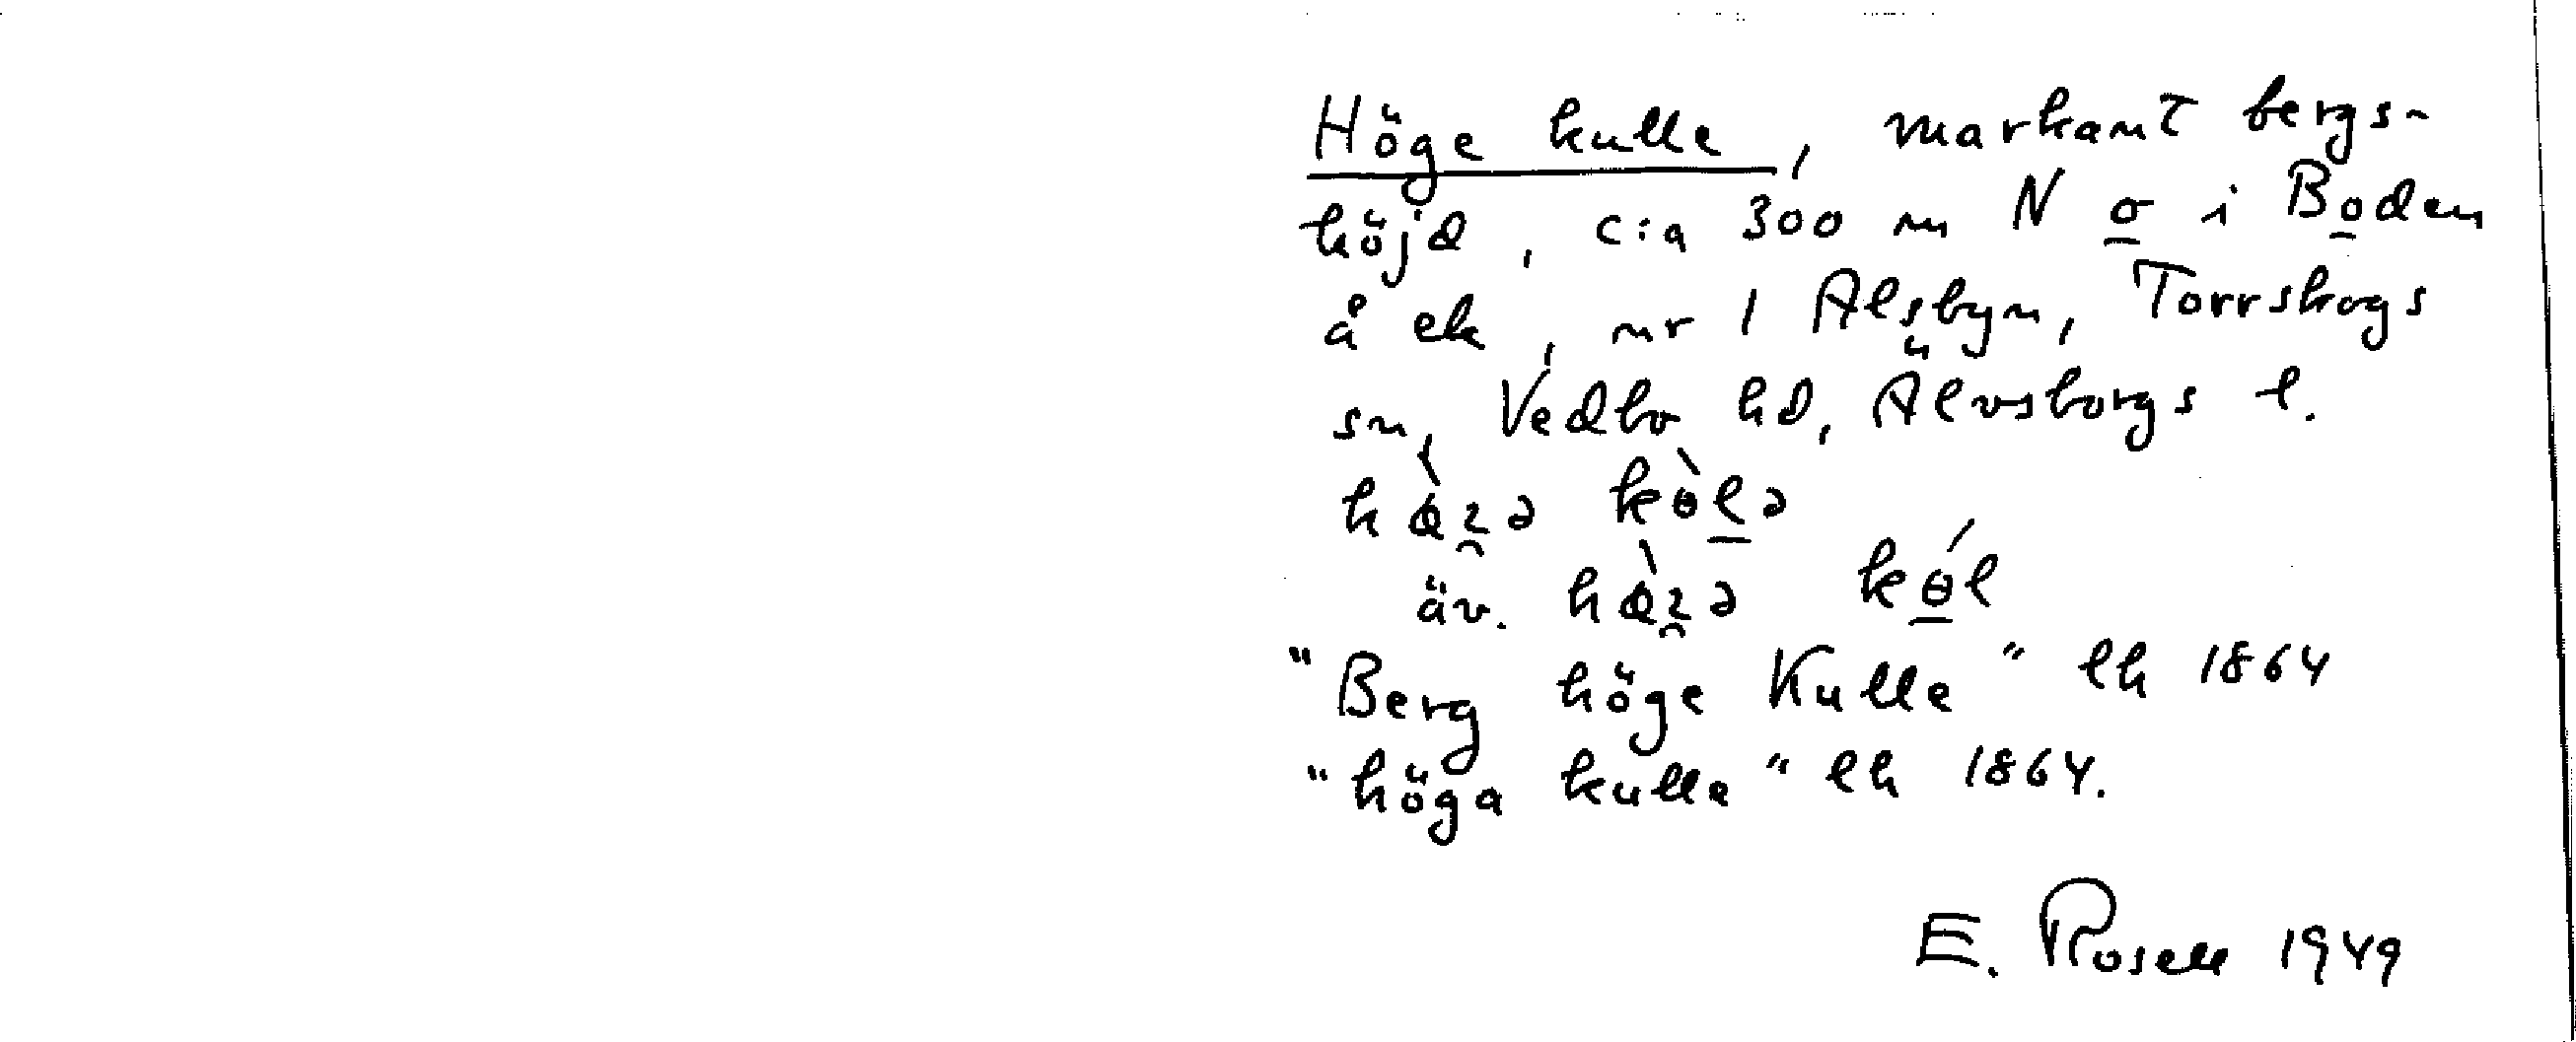 Höge kulle, markant bergs-
höjd, c:a 300 m N o i Boden
å ek, nr 1 Alsbyn, Torrskogs
sn, Vedbo hd, Älvsborgs l.
äv.
"Berg höge Kulle" lh 1864
"höga kulle" lh 1864.
E. Rosell 1949